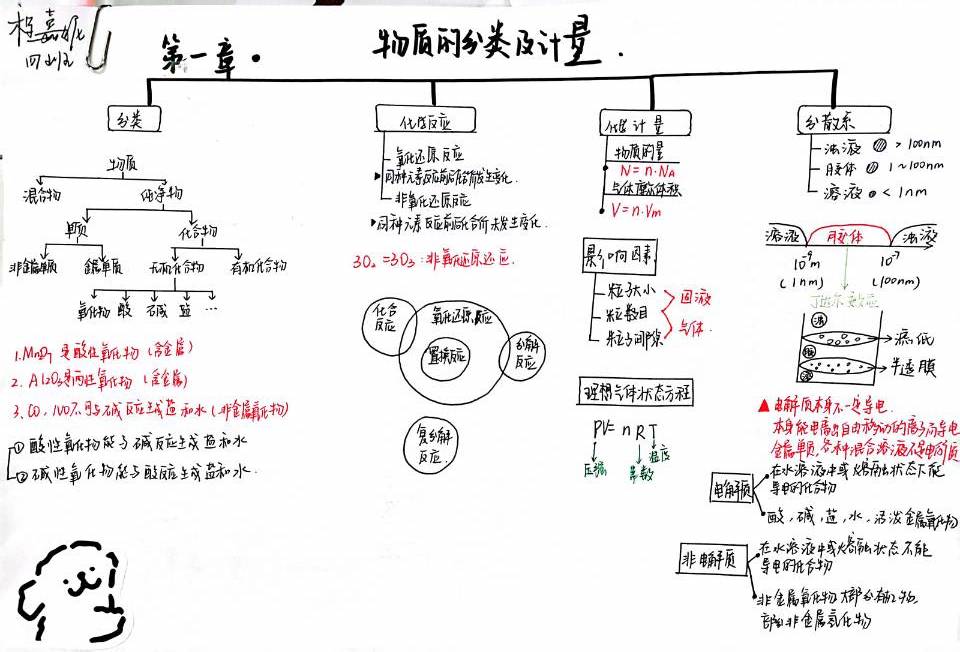 程嘉妮
四班
第一章.
物质的分类及计量.
分类
物质
混合物 纯净物
单质 化合物
非金属单质 金属单质 无机化合物 有机化合物
氧化物 酸 碱 盐 ...
1.Mn₂O₇ 是酸性氧化物 (含金属)
2. Al2O3是两性氧化物 (含金属)
3. CO, NO不可与碱反应生成盐和水 (非金属氧化物)
① 酸性氧化物能与碱反应生成盐和水
② 碱性氧化物能与酸反应生成盐和水.
化学反应
氧化还原反应
同种元素反应前后化合价发生变化.
非氧化还原反应
同种元素反应前后化合价未发生变化.
3O₂ =2O₃ : 非氧化还原反应.
化合
反应
氧化还原反应
置换反应
分解
反应
复分解
反应
化学计量
物质的量
N = n·NA
气体摩尔体积
V = n·Vm
影响因素
粒子大小
粒子数目
粒子间隙
固液
气体.
理想气体状态方程
PV = nRT
压强 常数 温度
分散系
浊液 > 100nm
胶体 1~100nm
溶液 < 1nm
溶液 胶体 浊液
10⁻⁹m 10⁻⁷
(1nm) (100nm)
丁达尔效应
浊
胶
溶
滤纸
半透膜
▲ 电解质本身不一定导电.
本身能电离出自由移动的离子而导电
金属单质, 各种混合溶液不是电解质
电解质
在水溶液中或熔融状态下能
导电的化合物
酸, 碱, 盐, 水, 活泼金属氧化物
非电解质
在水溶液中或熔融状态不能
导电的化合物
非金属氧化物 大部分有机物
部分非金属氢化物